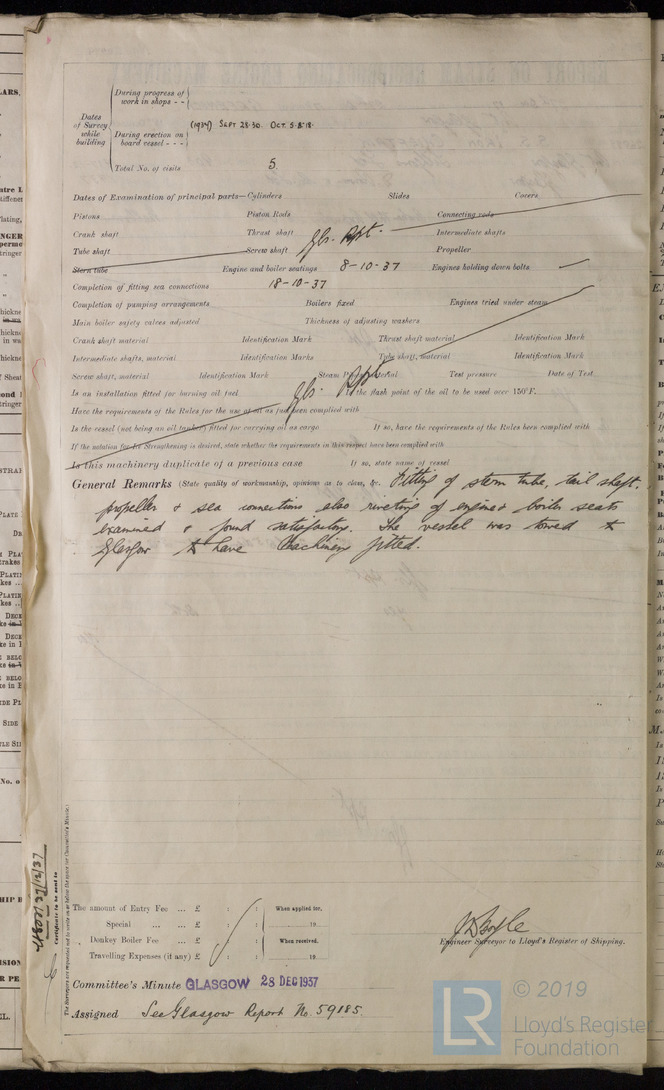 During progress of
work in shops - -
Dates
of Survey
while
building
During erection on
board vessel - - -
(1937) SEPT 28.30. OCT. 5.8.18.
Total No. of visits
5.
Dates of Examination of principal parts—Cylinders Slides Covers
Pistons Piston Rods Connecting rods
Crank shaft Thrust shaft Gls. Rpt. Intermediate shafts
Tube shaft Screw shaft Propeller
Stern tube Engine and boiler seatings 8-10-37 Engines holding down bolts
Completion of fitting sea connections 18-10-37
Completion of pumping arrangements Boilers fixed Engines tried under steam
Main boiler safety valves adjusted Thickness of adjusting washers
Crank shaft material Identification Mark Thrust shaft material Identification Mark
Intermediate shafts, material Identification Marks Tube shaft, material Identification Mark
Screw shaft, material Identification Mark Steam Pipes, material Test pressure Date of Test
Is an installation fitted for burning oil fuel Gls. Rpt. Is the flash point of the oil to be used over 150°F.
Have the requirements of the Rules for the use of oil as fuel been complied with
Is the vessel (not being an oil tanker) fitted for carrying oil as cargo If so, have the requirements of the Rules been complied with
If the notation for Ice Strengthening is desired, state whether the requirements in this respect have been complied with
Is this machinery duplicate of a previous case If so, state name of vessel
General Remarks (State quality of workmanship, opinions as to class, &c. Fitting of stern tube, tail shaft.
propeller & sea connections also riveting of engine & boiler seats
examined & found satisfactory. The vessel was towed to
Glasgow to have machinery fitted.
The amount of Entry Fee ... £ : : When applied for,
Special ... ... £ : : 19
Donkey Boiler Fee ... £ : : When received.
Travelling Expenses (if any) £ : : 19
Engineer Surveyor to Lloyd's Register of Shipping.
Committee's Minute GLASGOW 28 DEC 1937
Assigned See Glasgow Report No. 59185.
Certificate to be sent to
The Surveyors are requested not to write on or below the space for Committee's Minute.
LR
© 2019
Lloyd's Register
Foundation